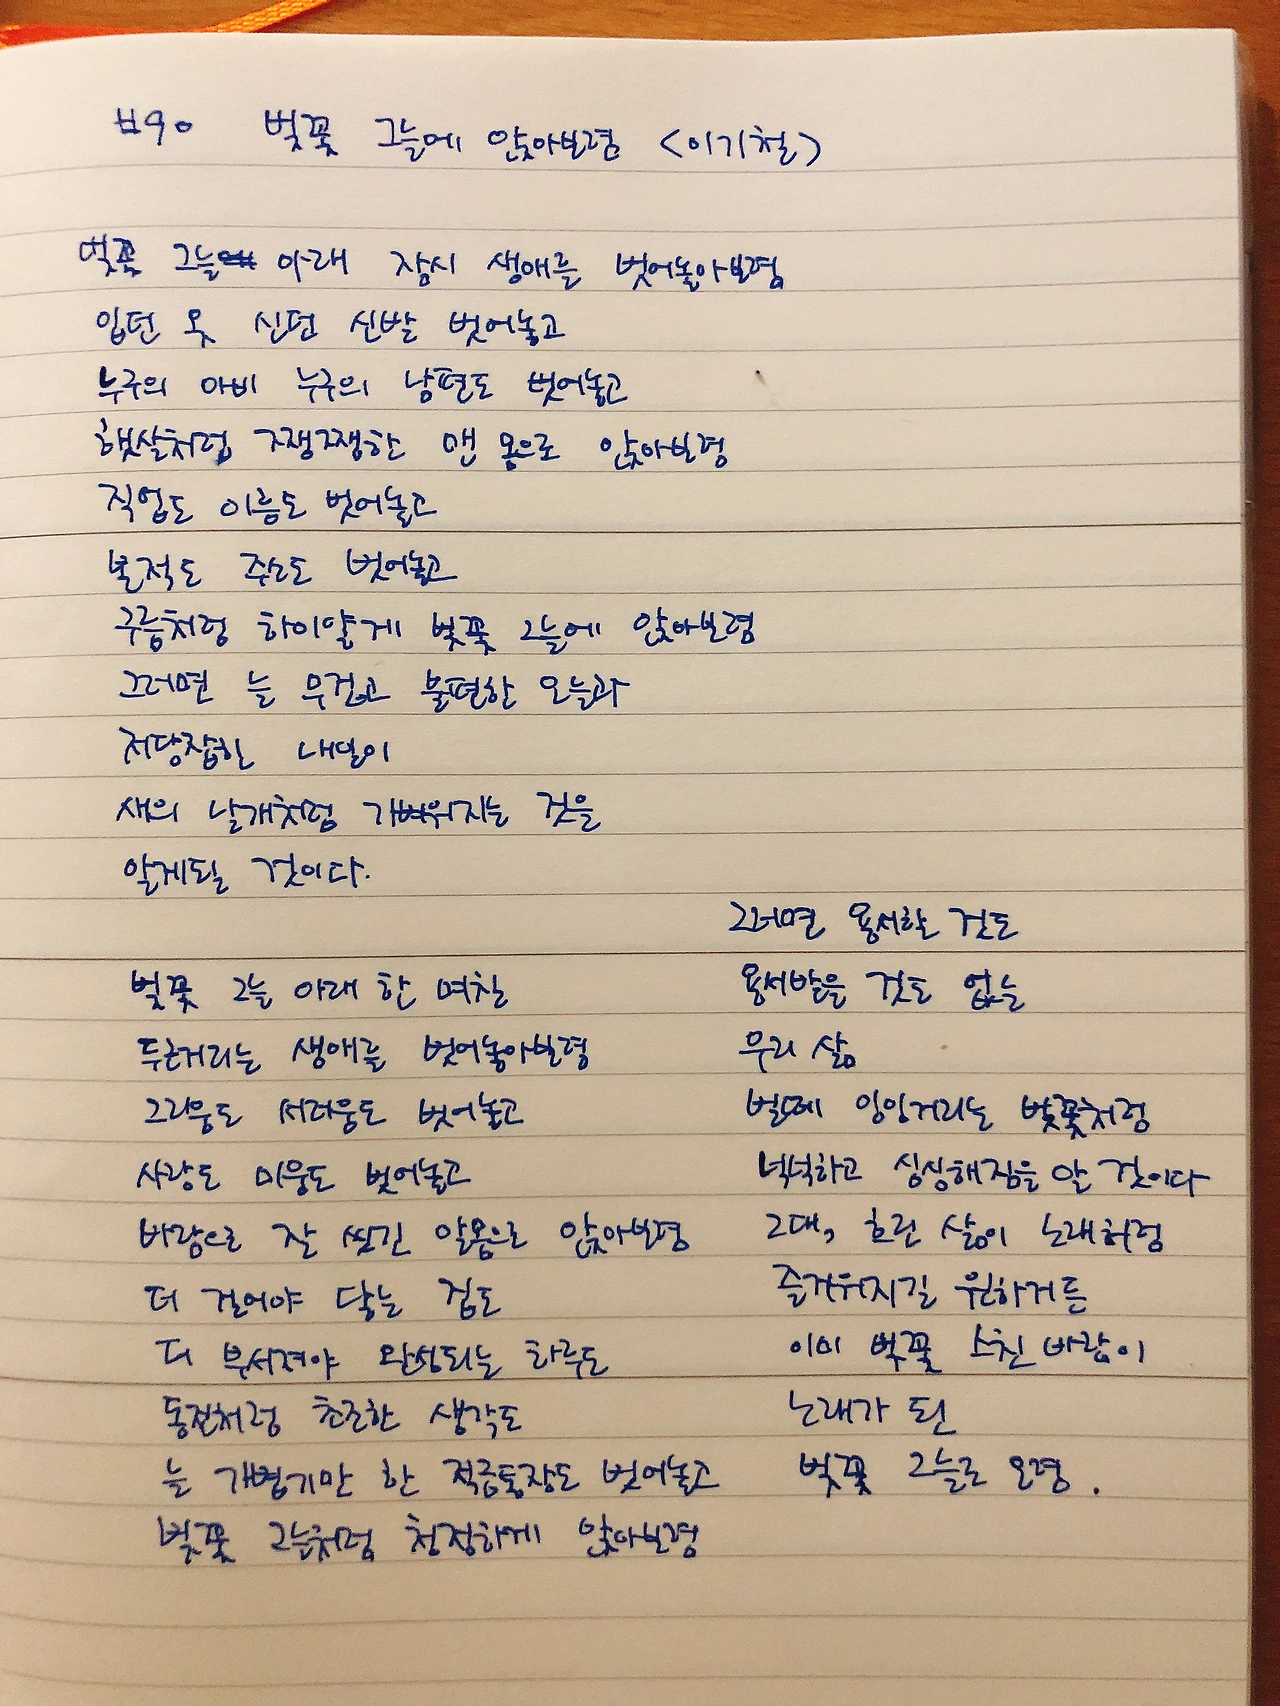 #90 벚꽃 그늘에 앉아보렴 <이기철>
벚꽃 그늘 아래 잠시 생애를 벗어놓아보렴
입던 옷 신던 신발 벗어놓고
누구의 아비 누구의 남편도 벗어놓고
햇살처럼 쨍쨍한 맨 몸으로 앉아보렴
직업도 이름도 벗어놓고
본적도 주소도 벗어놓고
구름처럼 하이얗게 벚꽃 그늘에 앉아보렴
그러면 늘 무겁고 불편한 오늘과
저당잡힌 내일이
새의 날개처럼 가벼워지는 것을
알게될 것이다.
벚꽃 그늘 아래 한 며칠
두근거리는 생애를 벗어놓아보렴
그리움도 서러움도 벗어놓고
사랑도 미움도 벗어놓고
바람으로 잘 씻긴 알몸으로 앉아보렴
더 걸어야 닿는 집도
더 부서져야 완성되는 하루도
동전처럼 초조한 생각도
늘 가볍기만 한 적금통장도 벗어놓고
벚꽃 그늘처럼 청정하게 앉아보렴
그러면 용서할 것도
용서받을 것도 없는
우리 삶
벌떼 잉잉거리는 벚꽃처럼
넉넉하고 싱싱해짐을 알 것이다
그대, 흐린 삶이 노래처럼
즐거워지길 원하거든
이미 벚꽃 스친 바람이
노래가 된
벚꽃 그늘로 오렴.